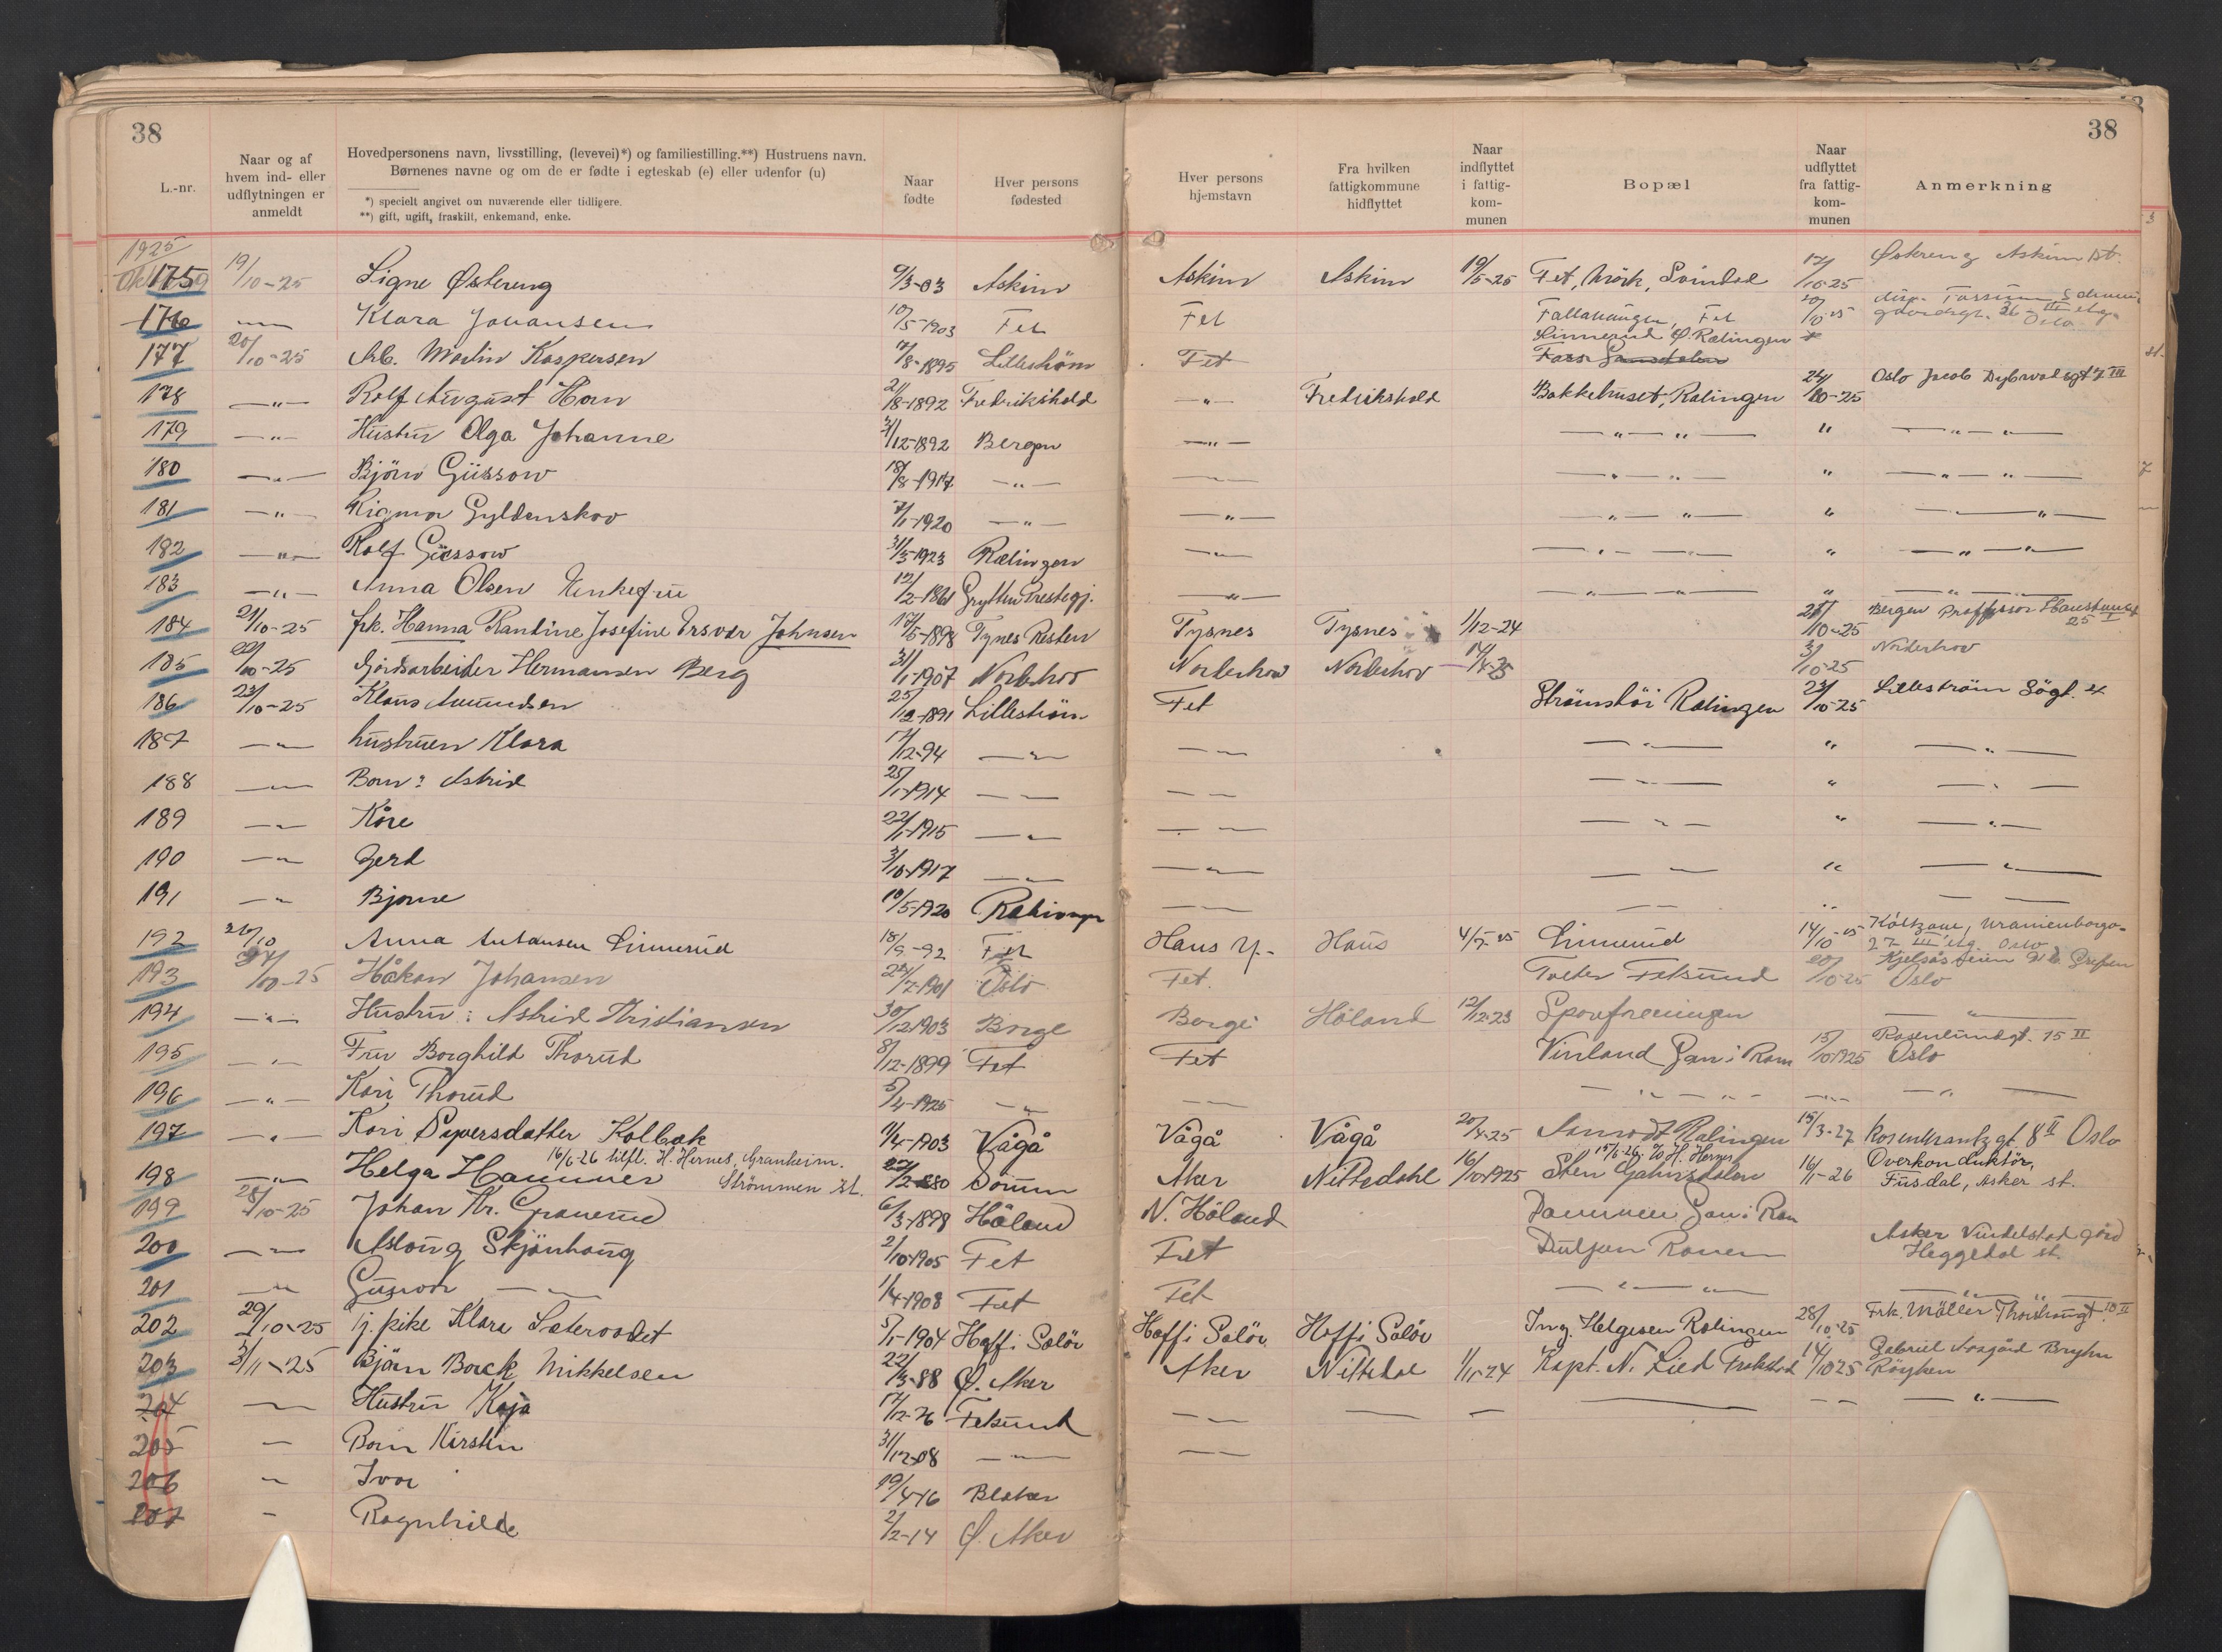 38
38
L.-nr.
Naar og af hvem ind- eller udflytningen er anmeldt
Hovedpersonens navn, livsstilling, (levevei)*) og familiestilling.**) Hustruens navn.
Børnenes navne og om de er fødte i egteskab (e) eller udenfor (u)
*) specielt angivet om nuværende eller tidligere.
**) gift, ugift, fraskilt, enkemand, enke.
Naar fødte
Hver persons fødested
Hver persons hjemstavn
Fra hvilken fattigkommune hidflyttet
Naar indflyttet i fattig-kom-munen
Bopæl
Naar udflyttet fra fattig-kom-munen
Anmerkning
1925
175 19/10-25 Signe Østereng 9/3-03 Askim Askim Askim 19/5-25 Fet, Mörk, Svindal 17/10-25 Østreng Askim st.
176 -"- Klara Johansen 10/5-1903 Fet Fet Fallahaugen, Fet 20/10-25 gt. 26 III etg. Oslo
Linnerud Ø. Rælingen
177 20/10-25 Arb. Martin Kaspersen 7/8-1895 Lilleström Fet
178 -"- Rolf August Horn 21/8-1892 Fredrikshald -"- Fredrikshald Bakkehuset, Rælingen 24/10-25 Oslo Jacob Dybwadsgt 7 III
179 -"- Hustru Olga Johanne 31/12-1892 Bergen -"- -"- " -"-
180 -"- Björn Güssow 18/8-1917 -"- -"- -"- " -"-
181 -"- Rigmor Gyldenskov 7/1-1920 -"- -"- -"- " -"-
182 -"- Rolf Güssow 31/5-1923 Rælingen -"- -"- " -"-
183 -"- Anna Olsen Enkefru 12/2-1861 Grytten Prestegj. -"- -"- " -"-
184 21/10-25 frk. Hanna Rantine Josefine Johnsen 17/5-1898 Tysnes Tysnes 1/12-24 28/10-25 Bergen Professor Hansteensgt 25 I
185 22/10-25 Gårdsarbeider Hermansen Berg 31/1-1907 Norderhov Norderhov Norderhov 14/4-25 3/10-25 Norderhov
186 23/10-25 Klaus Amundsen 25/12-1891 Lilleström Fet Rælingen 23/10-25 Lilleström
187 -"- hustruen Klara 17/12-94 -"- -"- -"- " -"-
188 -"- Barn: Astrid 25/1-1914 -"- -"- -"- " -"-
189 -"- Kåre 22/1-1915 -"- -"- -"- " -"-
190 -"- Gerd 3/10-1917 -"- -"- -"- " -"-
191 -"- Bjarne 10/5-1920 Rælingen -"- -"- " -"-
192 26/10 Anna Antausen Linnerud 18/9-92 Fet Haus Linnerud 14/10-25 Uranienborgv. 27 III etg. Oslo
193 27/10-25 Håkon Johansen 24/7-1901 Oslo Fet. Fetsund 20/10-25 Kjelsåsveien Grefsen Oslo
194 -"- Hustru: Astrid Kristiansen 30/12-1903 Borge Borge Höland 12/12-23 -"-
195 -"- Fru Borghild Thorud 8/12-1899 Fet Fet Vinland Gan i Ram 15/10 1925 Rosenlundgt. 15 II Oslo
196 -"- Kari Thorud 5/4-1925 -"- -"- -"- -"- -"-
197 -"- Kari Syversdatter Kolbak 11/4-1903 Vågå Vågå Vågå 20/4-25 Rælingen 15/3-27 Rosenkrantzgt. 8 II Oslo
16/6-26 tilfl. H. Hernes, Granheim. Strömmen st.
198 -"- Helga Hammer 22/2-80 Aker Nittedahl 16/10 1925 16/1-26 Overkonduktör, Fusdal, Asker st.
199 28/10-25 Johan Kr. Granerud 6/3-1898 Höland N. Höland Gan i Ram
200 -"- Aslaug Skjönhaug 2/10-1905 Fet Fet Asker gård Heggedal st.
201 -"- Gunvor -"- 1/4-1908 Fet Fet -"- -"-
202 29/10-25 Tj.pike Klara Sæteroodet 5/1-1904 Hof i Solör Hof i Solör Hof i Solör Ing. Helgesen Rælingen 28/10-25 Frk. Möller 10 II
203 3/11-25 Björn Borck Mikkelsen 22/3-88 Ø. Aker Aker Nittedal 1/11-24 Kapt. N. Lied 14/10 25 Gabriel Aasgård Bryhn Röyken
204 -"- Hustru Kaja 17/12-26 Fetsund -"- -"- -"- -"-
205 -"- Barn Kirsten 31/12-08 -"- -"-
206 -"- Ivar 19/4-16 Blaker
207 -"- Ragnhilde 2/2-14 Ø. Aker